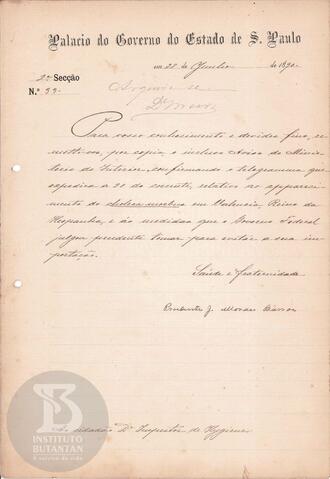 Palacio do Governo do Estado de S. Paulo
em 28 de Junho de 1890.
2ª Secção
N.º 33.
Archive-se
Para vosso conhecimento e devidos fins, re-
metto-vos, por copia, o incluso Aviso do Minis-
terio do Interior, confirmando o telegramma que
expedira a 20 do corrente, relativo ao appareci-
mento do cholera morbus em Valencia, Reino da
Hespanha, e ás medidas que o Governo Federal
julgou prudente tomar para evitar a sua im-
portação.
Saúde e fraternidade
Prudente J. Moraes Barros
Ao cidadão Dr. Inspector de Hygiene
INSTITUTO
BUTANTAN
A serviço da vida